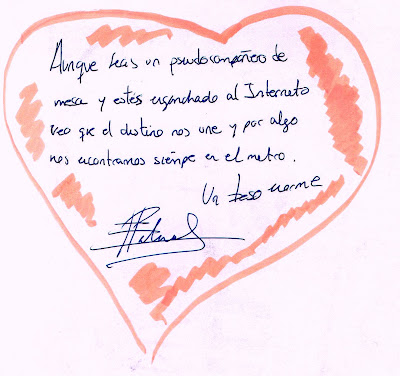 Aunque seas un pseudocompañero de
mesa y estés enganchado al Interneto
veo que el destino nos une y por algo
nos encontramos siempe en el metro.
Un beso enorme